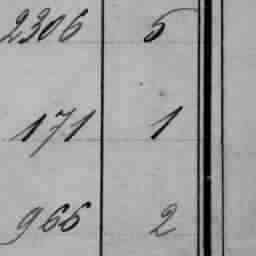 2306 5
171 1
966 2